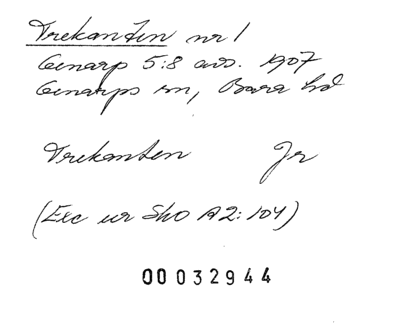 Trekanten nr 1
Genarp 5:8 avs. 1907
Genarps sn, Bara hd
Trekanten Jr
(Exc ur Sko A2:104)
00032944